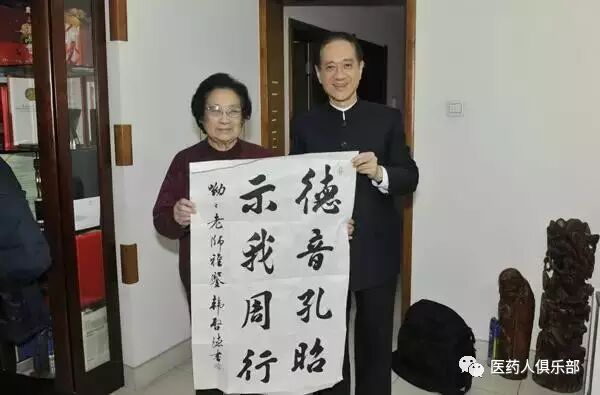 德音孔昭
示我周行
呦々老师雅鉴 韩启德书
医药人俱乐部